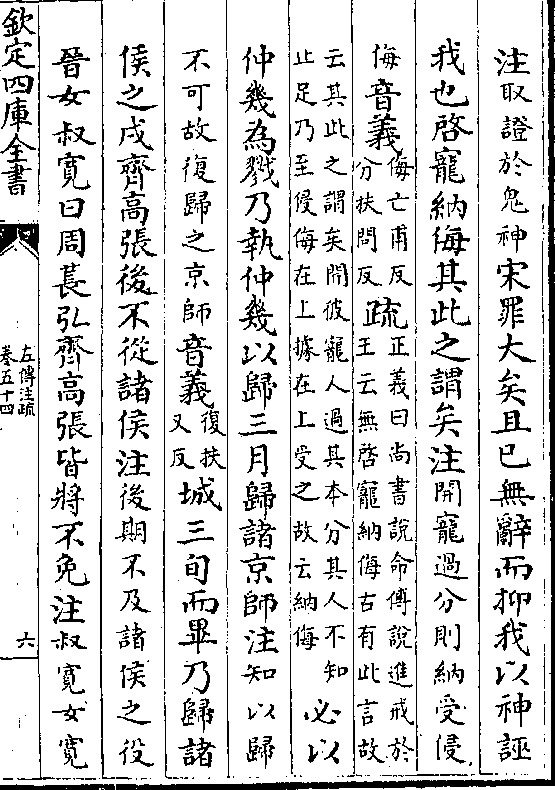 注取證於鬼神宋罪大矣且已無辭而抑我以神誣
我也啓寵納侮其此之謂矣注開寵過分則納受侵
侮音義侮亡甫反分扶問反疏正義曰尚書說命傅說進戒於王云無啓寵納侮古有此言故
云其此之謂矣開彼寵人過其本分其人不知止足乃至侵侮在上據在上受之故云納侮必以
仲幾為戮乃執仲幾以歸三月歸諸京師注知以歸
不可故復歸之京師音義復扶又反城三旬而畢乃歸諸
侯之戍齊高張後不從諸侯注後期不及諸侯之役
晉女叔寛曰周萇弘齊高張皆將不免注叔寛女寛
欽定四庫全書
左傳注疏
卷五十四
六